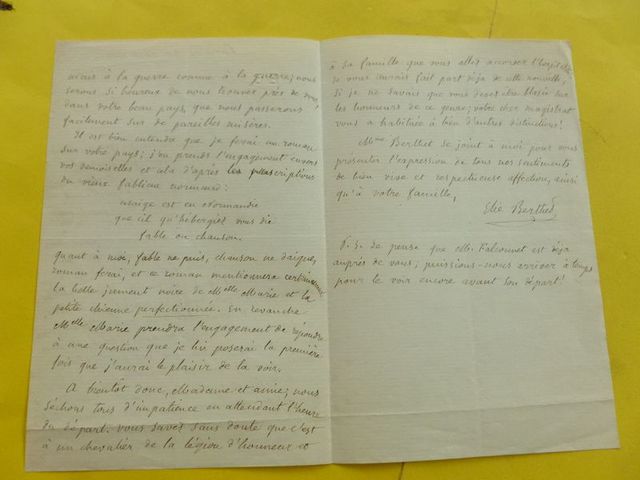 mais à la guerre comme à la guerre; nous
serons si heureux de nous trouver près de vous,
dans votre beau pays, que nous passerons
facilement sur de pareilles misères.
Il est bien entendu que je ferai un roman
sur votre pays; j'en prends l'engagement envers
vos demoiselles et cela d'après les prescriptions
du vieux fabliau normand:
usaige est en Normandie
que cil qu'hébergiez vous die
fable ou chanson.
quant à moi, fable ne puis, chanson ne daigne,
roman ferai, et ce roman mentionnera certainement
la belle jument noire de Melle Marie et la
petite perfectionnée. En revanche
Melle Marie prendra l'engagement de répondre
à une question que je lui poserai la première
fois que j'aurai le plaisir de la voir.
A bientôt donc, Madame et amie; nous
séchons tous d'impatience en attendant l'heure
du départ. Vous savez sans doute que c'est
à un chevalier de la légion d'honneur et
à sa famille que vous allez accorder l'hospitalité
je vous aurais fait part déjà de cette nouvelle,
si je ne savais que vous devez être blasée sur
les honneurs de ce genre; votre cher magistrat
vous a habituée à bien d'autres distinctions!
Mme Berthet se joint à moi pour vous
présenter l'expression de tous nos sentiments
de bien vive et respectueuse affection, ainsi
qu'à votre famille,
Elie Berthet
P. S. Je pense que Mr. est déjà
auprès de vous; puissions-nous arriver à temps
pour le voir encore avant son départ!